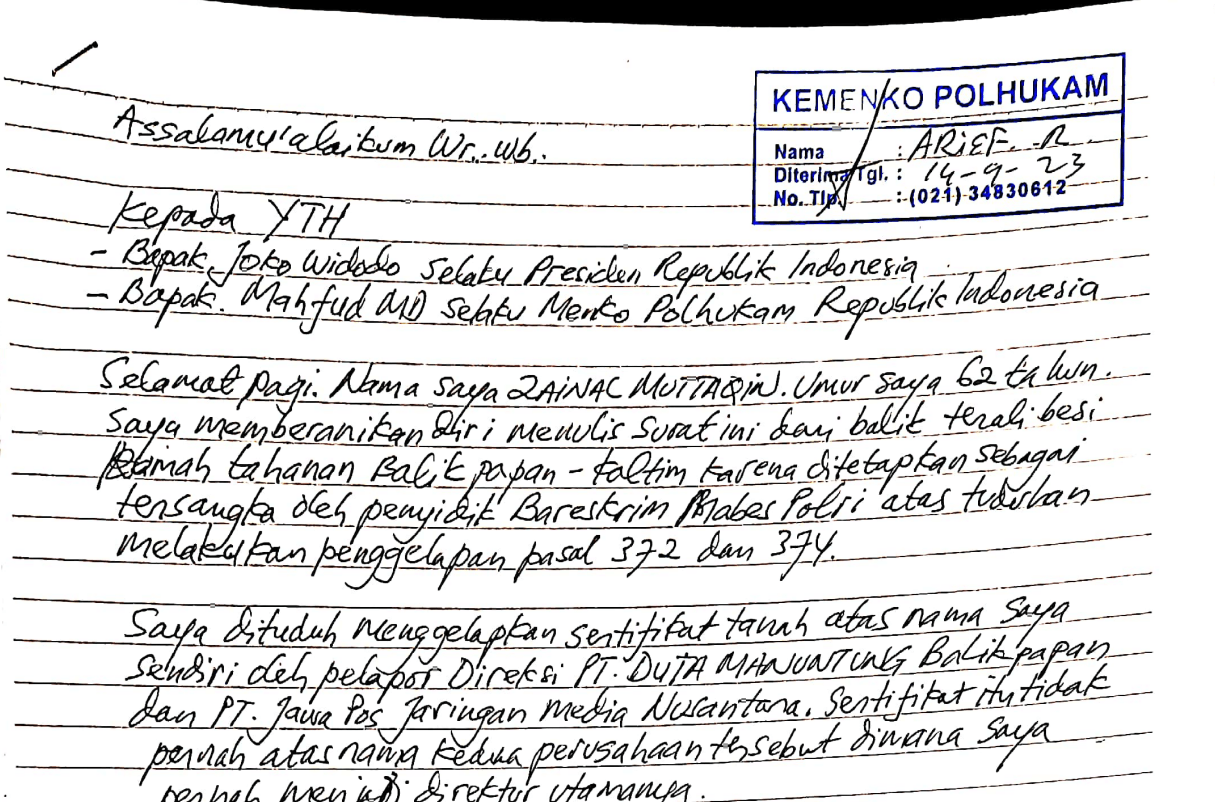 KEMENKO POLHUKAM
Nama : ARIEF. R
Diterima Tgl. : 14-9-23
No. Tlp. : (021) 34830612
Assalamu'alaikum Wr. Wb.
Kepada YTH
- Bapak. Joko Widodo Selaku Presiden Republik Indonesia
- Bapak. Mahfud MD Selaku Menko Polhukam Republik Indonesia
Selamat pagi. Nama saya ZAINAL MUTTAQIN. Umur saya 62 tahun.
Saya memberanikan diri menulis surat ini dari balik terali besi
Rumah tahanan Balikpapan - Kaltim karena ditetapkan sebagai
tersangka oleh penyidik Bareskrim Mabes Polri atas tuduhan
melakukan penggelapan pasal 372 dan 374.
Saya dituduh menggelapkan sertifikat tanah atas nama Saya
sendiri oleh pelapor Direksi PT. DUTA MANUNTUNG Balikpapan
dan PT. Jawa Pos Jaringan Media Nusantara. Sertifikat itu tidak
pernah atas nama kedua perusahaan tersebut dimana Saya
pernah menjadi direktur utamanya.